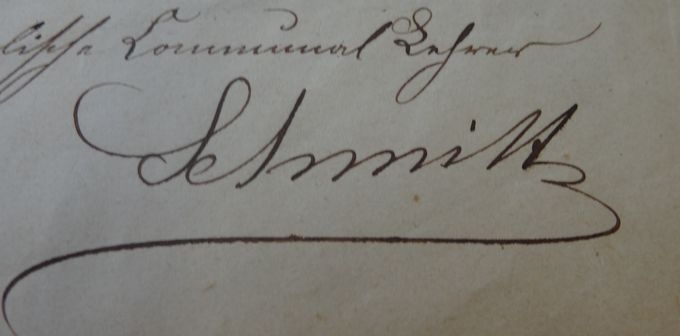 lische Communal Lehrer
Schmitt